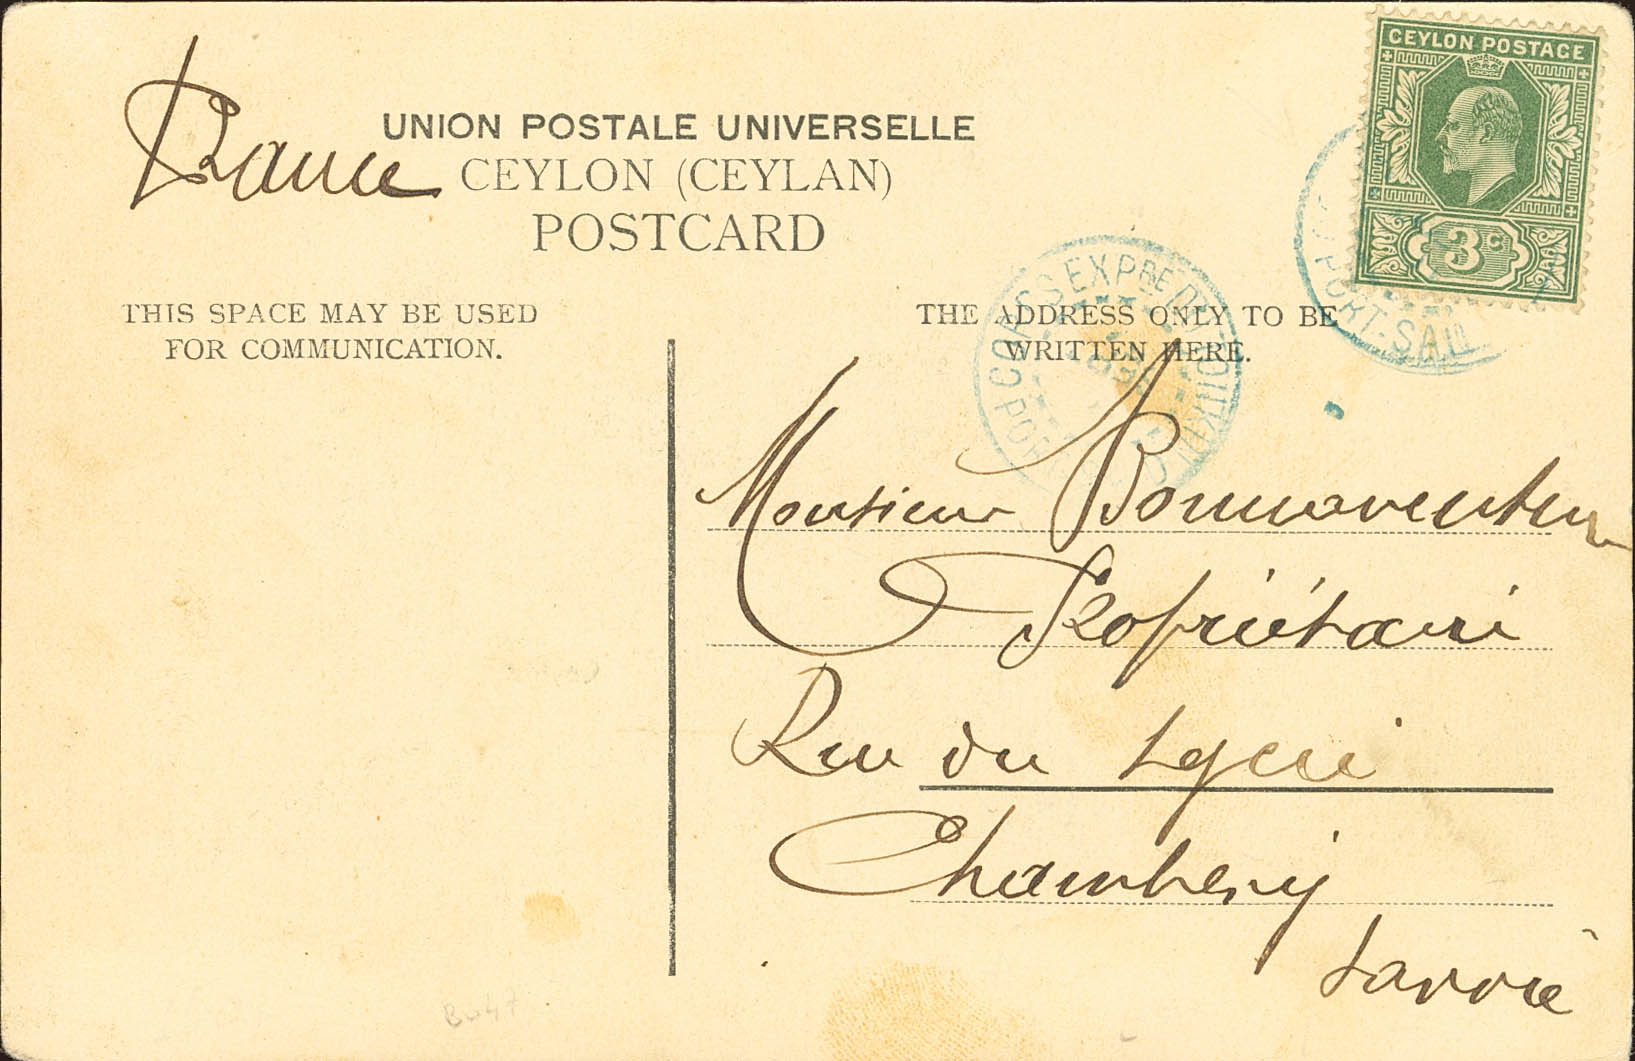 CEYLON POSTAGE
3c
France
UNION POSTALE UNIVERSELLE
CEYLON (CEYLAN)
POSTCARD
PORT-SAID
THIS SPACE MAY BE USED
FOR COMMUNICATION.
THE ADDRESS ONLY TO BE
WRITTEN HERE.
Monsieur Bonnaventure
Propriétaire
Rue du Lycée
Chambéry
Savoie